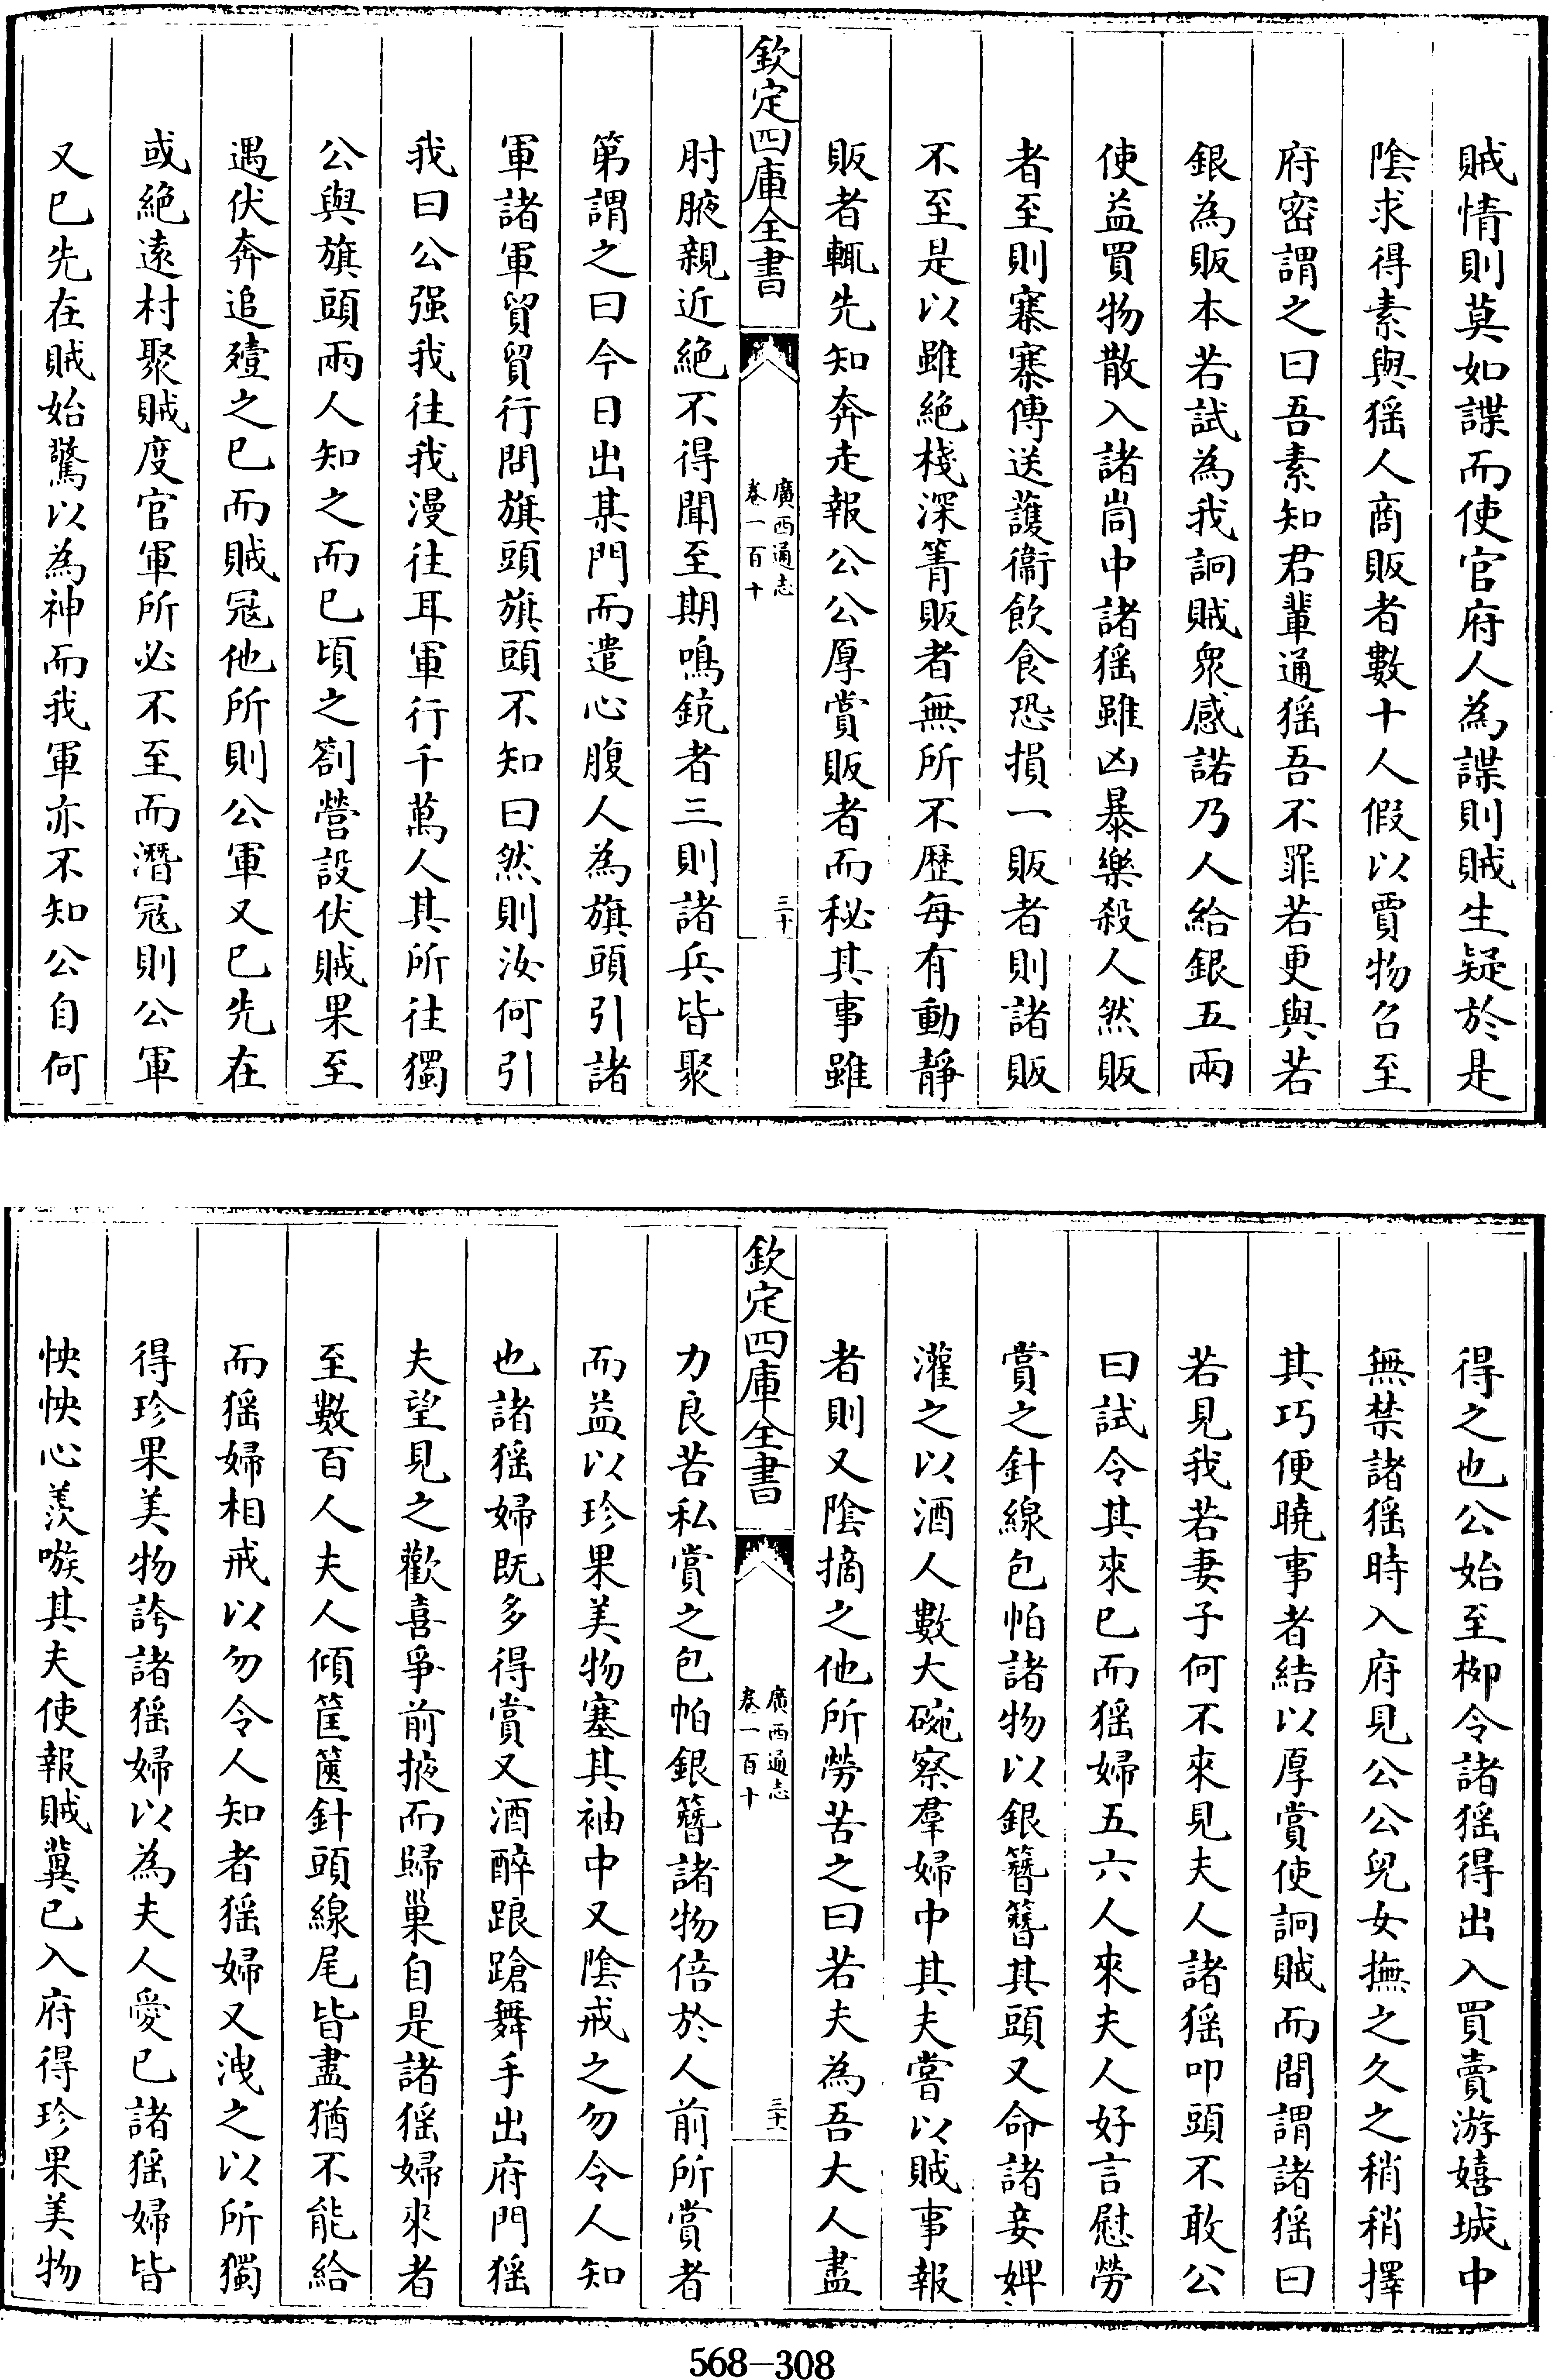 賊情則莫如諜而使官府人為諜則賊生疑於是
陰求得素與猺人商販者數十人假以買物召至
府密謂之曰吾素知君輩通猺吾不罪若更與若
銀為販本若試為我詗賊衆感諾乃人給銀五兩
使益買物散入諸峝中諸猺雖凶暴樂殺人然販
者至則寨寨傳送護衞飲食恐損一販者則諸販
不至是以雖絶棧深箐販者無所不歴每有動静
販者輒先知奔走報公公厚賞販者而秘其事雖
欽定四庫全書
廣西通志
卷一百十
三十
肘腋親近絶不得聞至期鳴銃者三則諸兵皆聚
第謂之曰今日出某門而遣心腹人為旗頭引諸
軍諸軍貿貿行問旗頭旗頭不知曰然則汝何引
我曰公强我往我漫往耳軍行千萬人其所往獨
公與旗頭兩人知之而已頃之劄營設伏賊果至
遇伏奔追殪之已而賊冦他所則公軍又已先在
或絶遠村聚賊度官軍所必不至而潛冦則公軍
又已先在賊始驚以為神而我軍亦不知公自何
得之也公始至栁令諸猺得出入買賣游嬉城中
無禁諸猺時入府見公公兒女撫之久之稍稍擇
其巧便曉事者結以厚賞使詗賊而間謂諸猺曰
若見我若妻子何不來見夫人諸猺叩頭不敢公
曰試令其來已而猺婦五六人來夫人好言慰勞
賞之針線包帕諸物以銀簪簪其頭又命諸妾婢
灌之以酒人數大碗察羣婦中其夫嘗以賊事報
者則又陰摘之他所勞苦之曰若夫為吾大人盡
欽定四庫全書
廣西通志
卷一百十
三十一
力良苦私賞之包帕銀簪諸物倍於人前所賞者
而益以珍果美物塞其袖中又陰戒之勿令人知
也諸猺婦既多得賞又酒醉踉蹌舞手出府門猺
夫望見之歡喜爭前掖而歸巢自是諸猺婦來者
至數百人夫人傾筐篋針頭線尾皆盡猶不能給
而猺婦相戒以勿令人知者猺婦又洩之以所獨
得珍果美物誇諸猺婦以為夫人愛已諸猺婦皆
怏怏心羨嗾其夫使報賊冀已入府得珍果美物
568—308